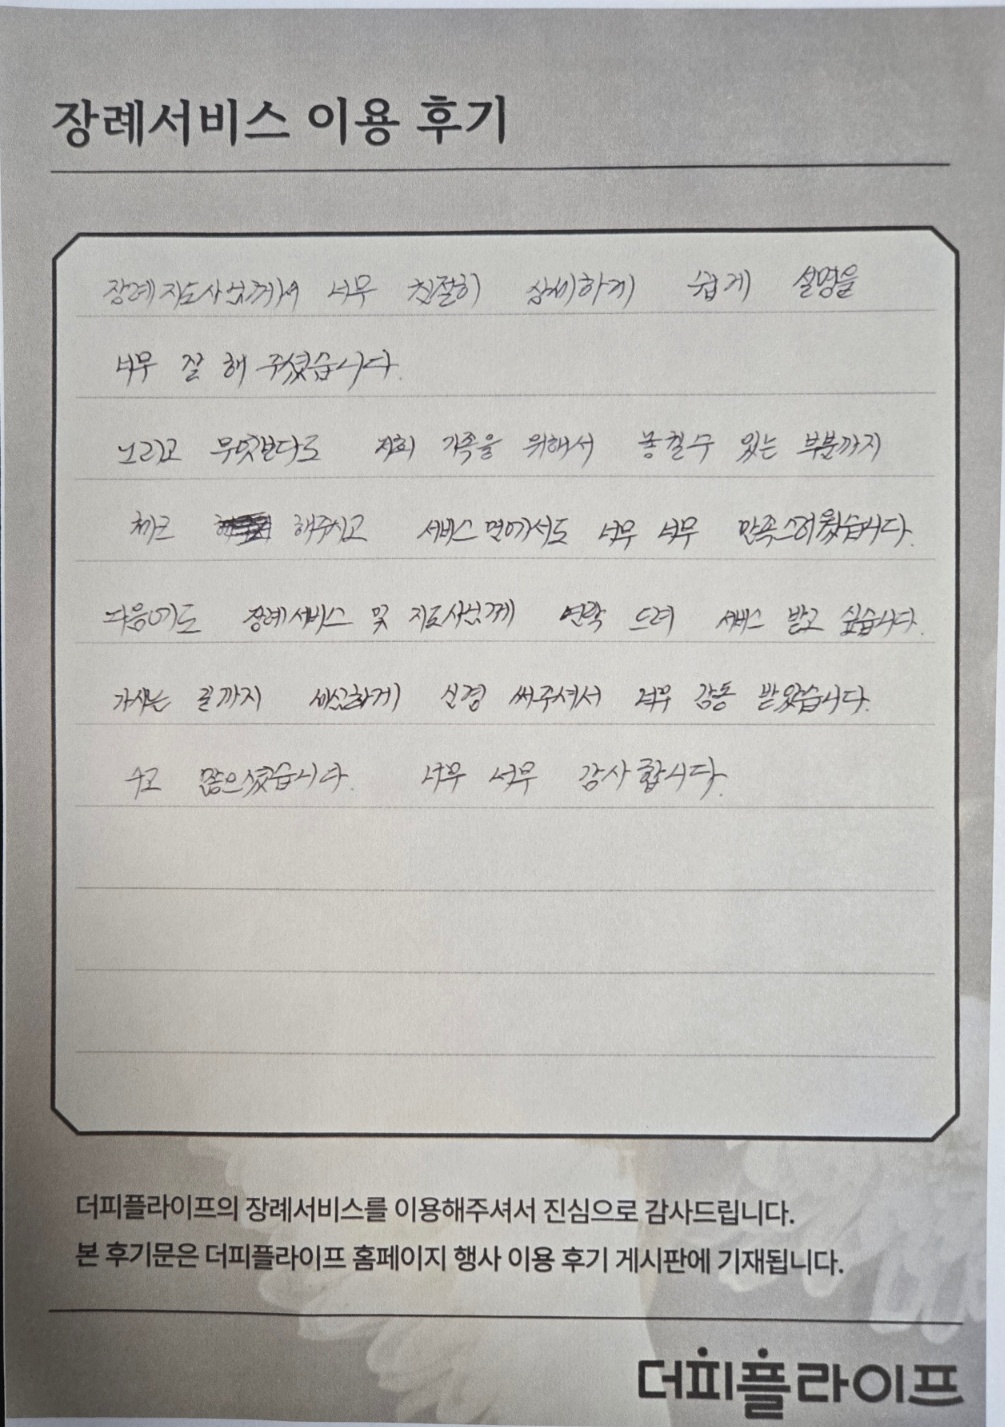 장례서비스 이용 후기
장례지도사님께서 너무 친절히 상세하게 쉽게 설명을
너무 잘 해 주셨습니다.
그리고 무엇보다도 저희 가족을 위해서 놓칠수 있는 부분까지
체크 해주시고 서비스 면에서도 너무 너무 만족스러웠습니다.
다음에도 장례서비스 및 지도사님께 연락 드려 서비스 받고 싶습니다.
가시는 길까지 세심하게 신경 써주셔서 너무 감동 받았습니다.
수고 많으셨습니다. 너무 너무 감사합니다.
더피플라이프의 장례서비스를 이용해주셔서 진심으로 감사드립니다.
본 후기문은 더피플라이프 홈페이지 행사 이용 후기 게시판에 기재됩니다.
더피플라이프